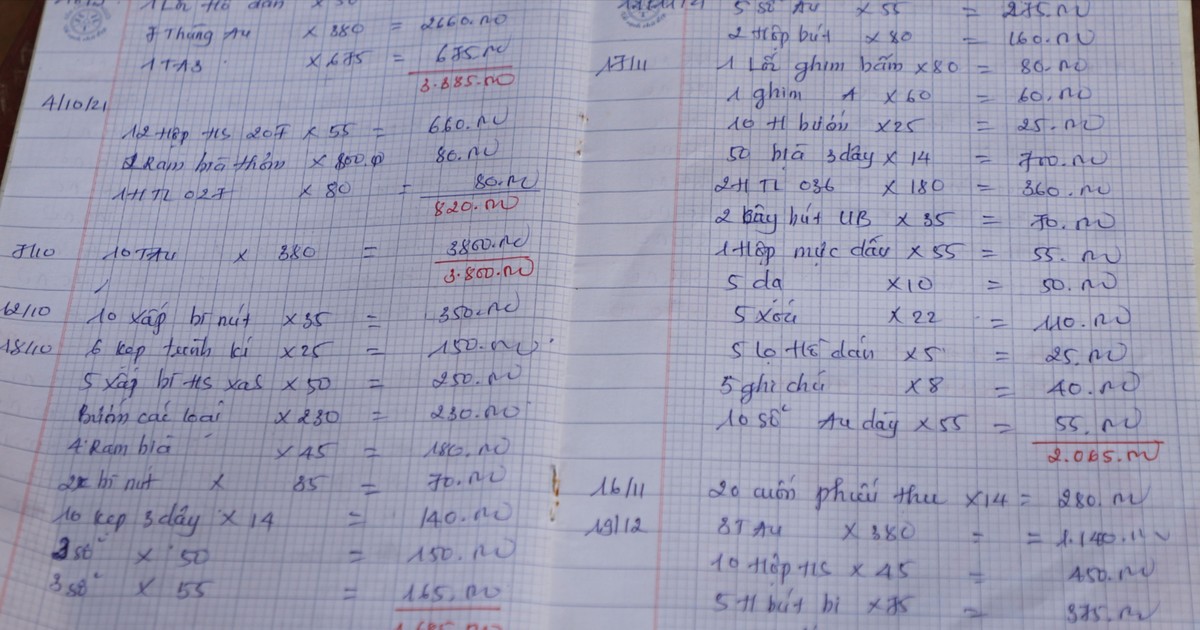 1 Lốc hồ dán x 50
7 Thùng A4 x 380 = 2660.00
1 TA3 x 675 = 675.00
3.385.00
4/10/21
12 Hộp HS 207 x 55 = 660.00
Ram bìa thơm x 800 80.00
1 H TL 027 x 80 = 80.00
820.00
7/10 10 TA4 x 380 = 3800.00
3.800.00
12/10 10 xấp bì nút x 35 = 350.00
18/10 6 kẹp trình kí x 25 = 150.00
5 xấp bì HS xas x 50 = 250.00
Bướm các loại x 230 = 230.00
4 Ram bìa x 45 = 180.00
bì nút x 35 = 70.00
10 kẹp 3 dây x 14 = 140.00
3 sổ x 50 = 150.00
3 sổ x 55 = 165.00
1.685.00
5 sổ A4 x 55 = 275.00
2 Hộp bút x 80 = 160.00
17/11 1 Lốc ghim bấm x 80 = 80.00
1 ghim A x 60 = 60.00
10 H bướm x 25 = 25.00
50 bìa 3 dây x 14 = 700.00
2 H TL 036 x 180 = 360.00
2 cây bút UB x 35 = 70.00
1 Hộp mực dấu x 55 = 55.00
5 da x 10 = 50.00
5 xóa x 22 = 110.00
5 lọ Hồ dán x 5 = 25.00
5 ghi chú x 8 = 40.00
10 sổ A4 dày x 55 = 55.00
2.065.00
16/11 20 cuốn phiếu thu x 14 = 280.00
19/12 3T A4 x 380 = = 1.140.00
10 Hộp HS x 45 = 450.00
5 H bút bi x 75 = 375.00